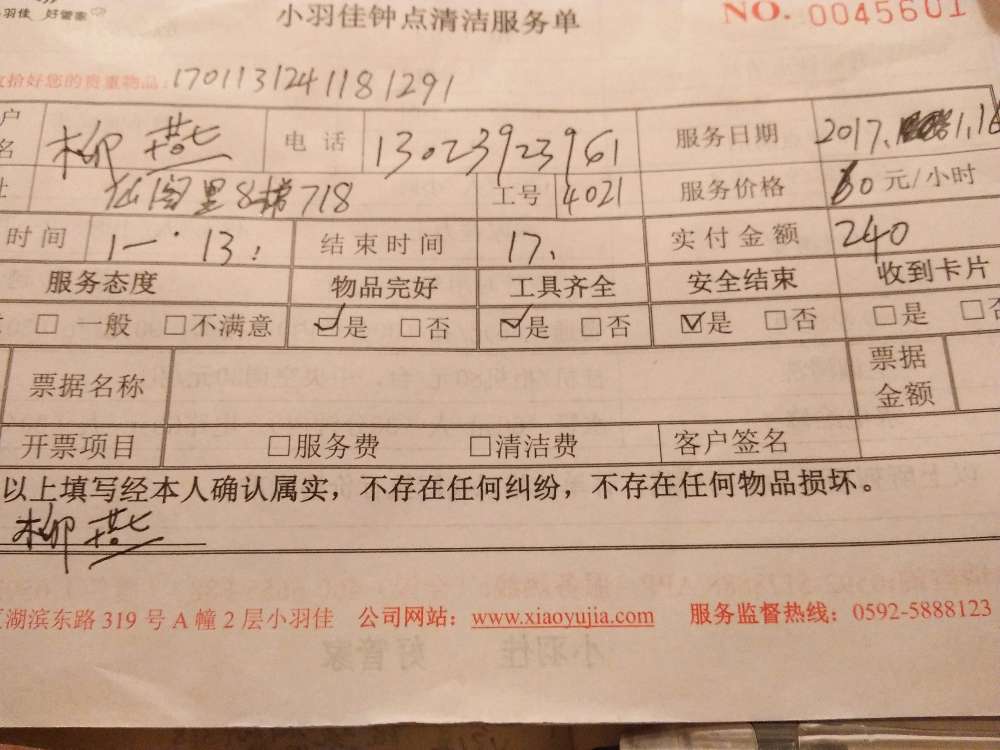 小羽佳 好管家
小羽佳钟点清洁服务单 NO. 0045601
拾好您的贵重物品：170113124118 1291
户名 柳燕 电话 13023923961 服务日期 2017. 1.16
仙阁里8梯718 工号 4021 服务价格 60元/小时
时间 13: 结束时间 17. 实付金额 240
服务态度 物品完好 工具齐全 安全结束 收到卡片
□ 一般 □不满意 ☑是 □否 ☑是 □否 ☑是 □否 □是 □否
票据名称 票据金额
开票项目 □服务费 □清洁费 客户签名
以上填写经本人确认属实，不存在任何纠纷，不存在任何物品损坏。
柳燕
湖滨东路 319 号 A 幢 2 层小羽佳 公司网站：www.xiaoyujia.com 服务监督热线：0592-5888123